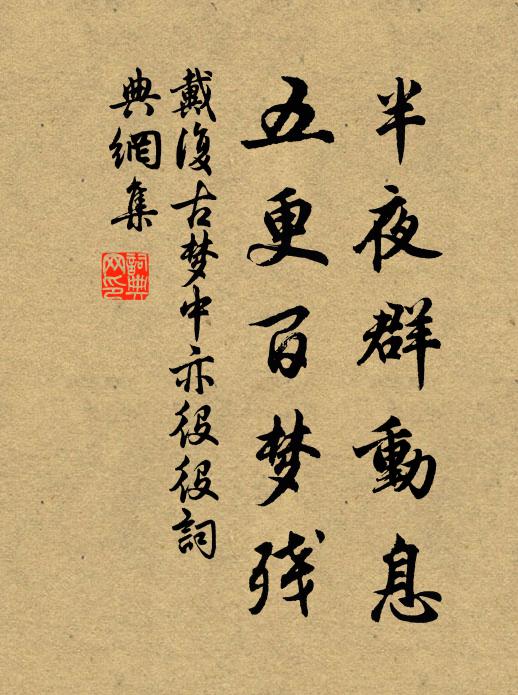 半夜群動息
五更百梦残
戴復古梦中亦役役詞
典網集
詞典網印